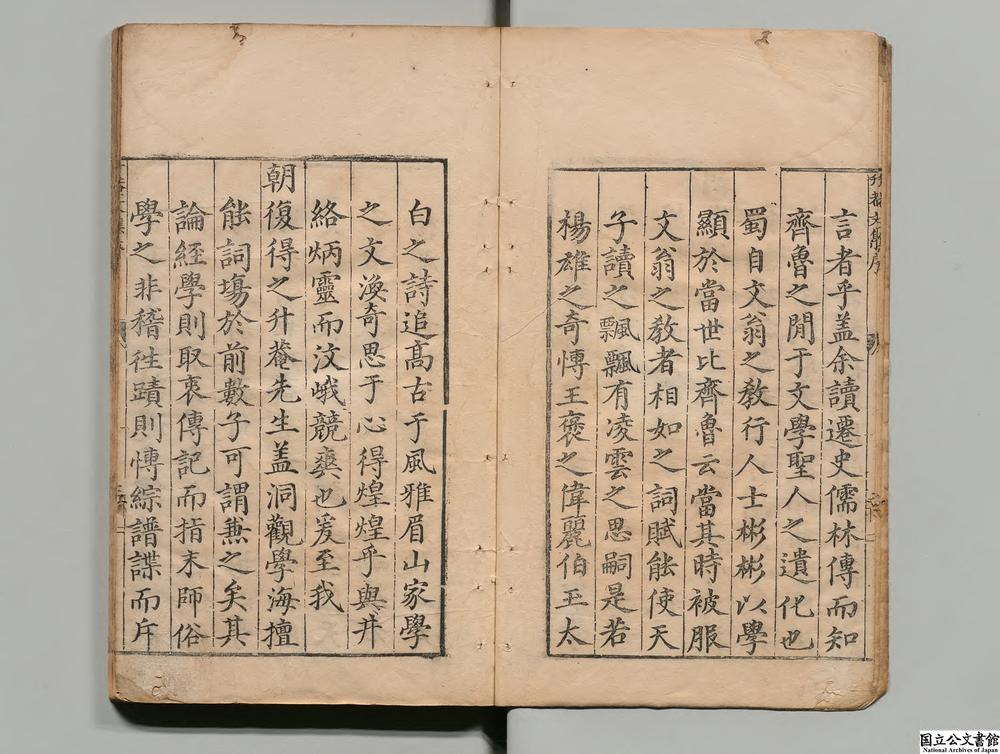 言者乎盖余讀遷史儒林傳而知
齊魯之間于文學聖人之遺化也
蜀自文翁之教行人士彬彬以學
顯於當世比齊魯云當其時被服
文翁之教者相如之詞賦能使天
子讀之飄飄有凌雲之思嗣是若
楊雄之奇愽王褒之偉麗伯玉太
白之詩追高古于風雅眉山家學
之文渙奇思于心得煌煌乎與井
絡炳靈而汶峨競爽也爰至我
朝復得之升菴先生盖洞觀學海擅
能詞塲於前數子可謂兼之矣其
論經學則取衷傳記而指末師俗
學之非稽徃蹟則愽綜譜諜而斥
国立公文書館
National Archives of Japan